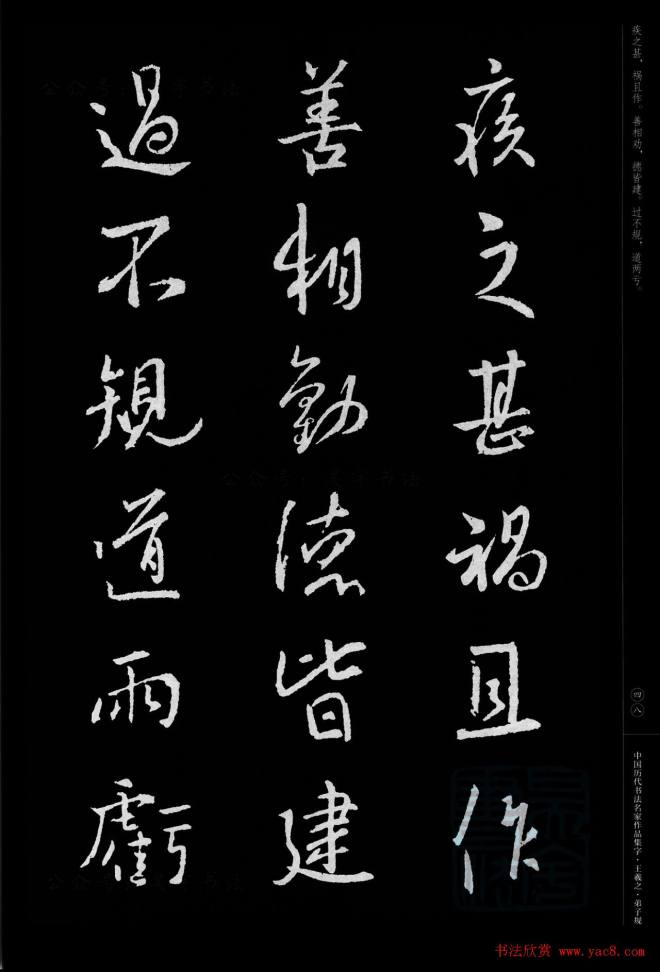 疾之甚祸且作
善相勸德皆建
過不規道兩虧
疾之甚，祸且作。善相劝，德皆建。过不规，道两亏。
四八
中国历代书法名家作品集字·王羲之·弟子规
书法欣赏 www.yac8.com